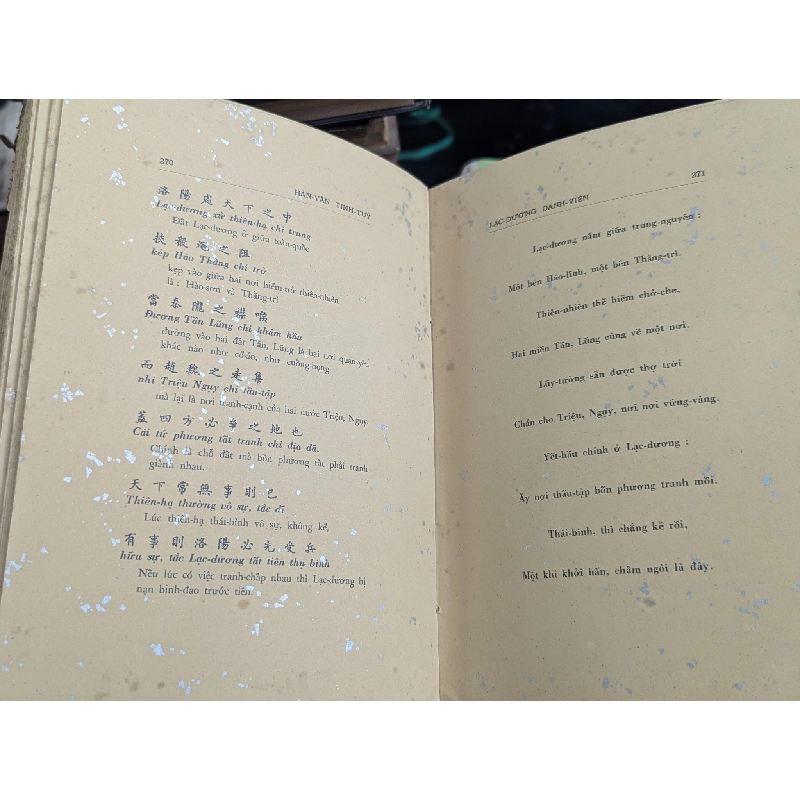 270
HÁN-VĂN TINH-TUÝ
洛陽處天下之中
Lạc-dương xử thiên-hạ chi trung
Đất Lạc-dương ở giữa toàn-quốc
挾殽黽之阻
kẹp Hào Thằng chi trở
kẹp vào giữa hai nơi hiểm-trở thiên-nhiên
là : Hào-sơn và Thằng-trì
當秦隴之襟喉
Đương Tần Lũng chi khâm hầu
đường vào hai đất Tần, Lũng là hai nơi quan-yế
khác nào như cổ-áo, như cuống-họng
而趙魏之走集
nhi Triệu Ngụy chi tẩu-tập
mà lại là nơi tranh-cạnh của hai nước Triệu, Ngụy
蓋四方必爭之地也
Cái tứ phương tất tranh chi địa dã.
Chính là chỗ đất mà bốn phương tất phải tranh
giành nhau.
天下常無事則已
Thiên-hạ thường vô sự, tắc dĩ
Lúc thiên-hạ thái-bình vô sự, không kể,
有事則洛陽必先受兵
hữu sự, tắc Lạc-dương tất tiên thụ binh
Nếu lúc có việc tranh-chấp nhau thì Lạc-dương bị
nạn binh-đao trước tiên.
LẠC-DƯƠNG DANH-VIÊN
271
Lạc-dương nằm giữa trung-nguyên :
Một bên Hào-lĩnh, một bên Thằng-trì.
Thiên-nhiên thế hiểm chở-che,
Hai miền Tần, Lũng cùng về một nơi.
Lũy-tường sẵn được thợ trời
Chắn cho Triệu, Ngụy, nơi nơi vững-vàng.
Yết-hầu chính ở Lạc-dương :
Ấy nơi thâu-tập bốn phương tranh mồi.
Thái-bình, thì chẳng kể rồi,
Một khi khởi hấn, châm ngòi là đây.